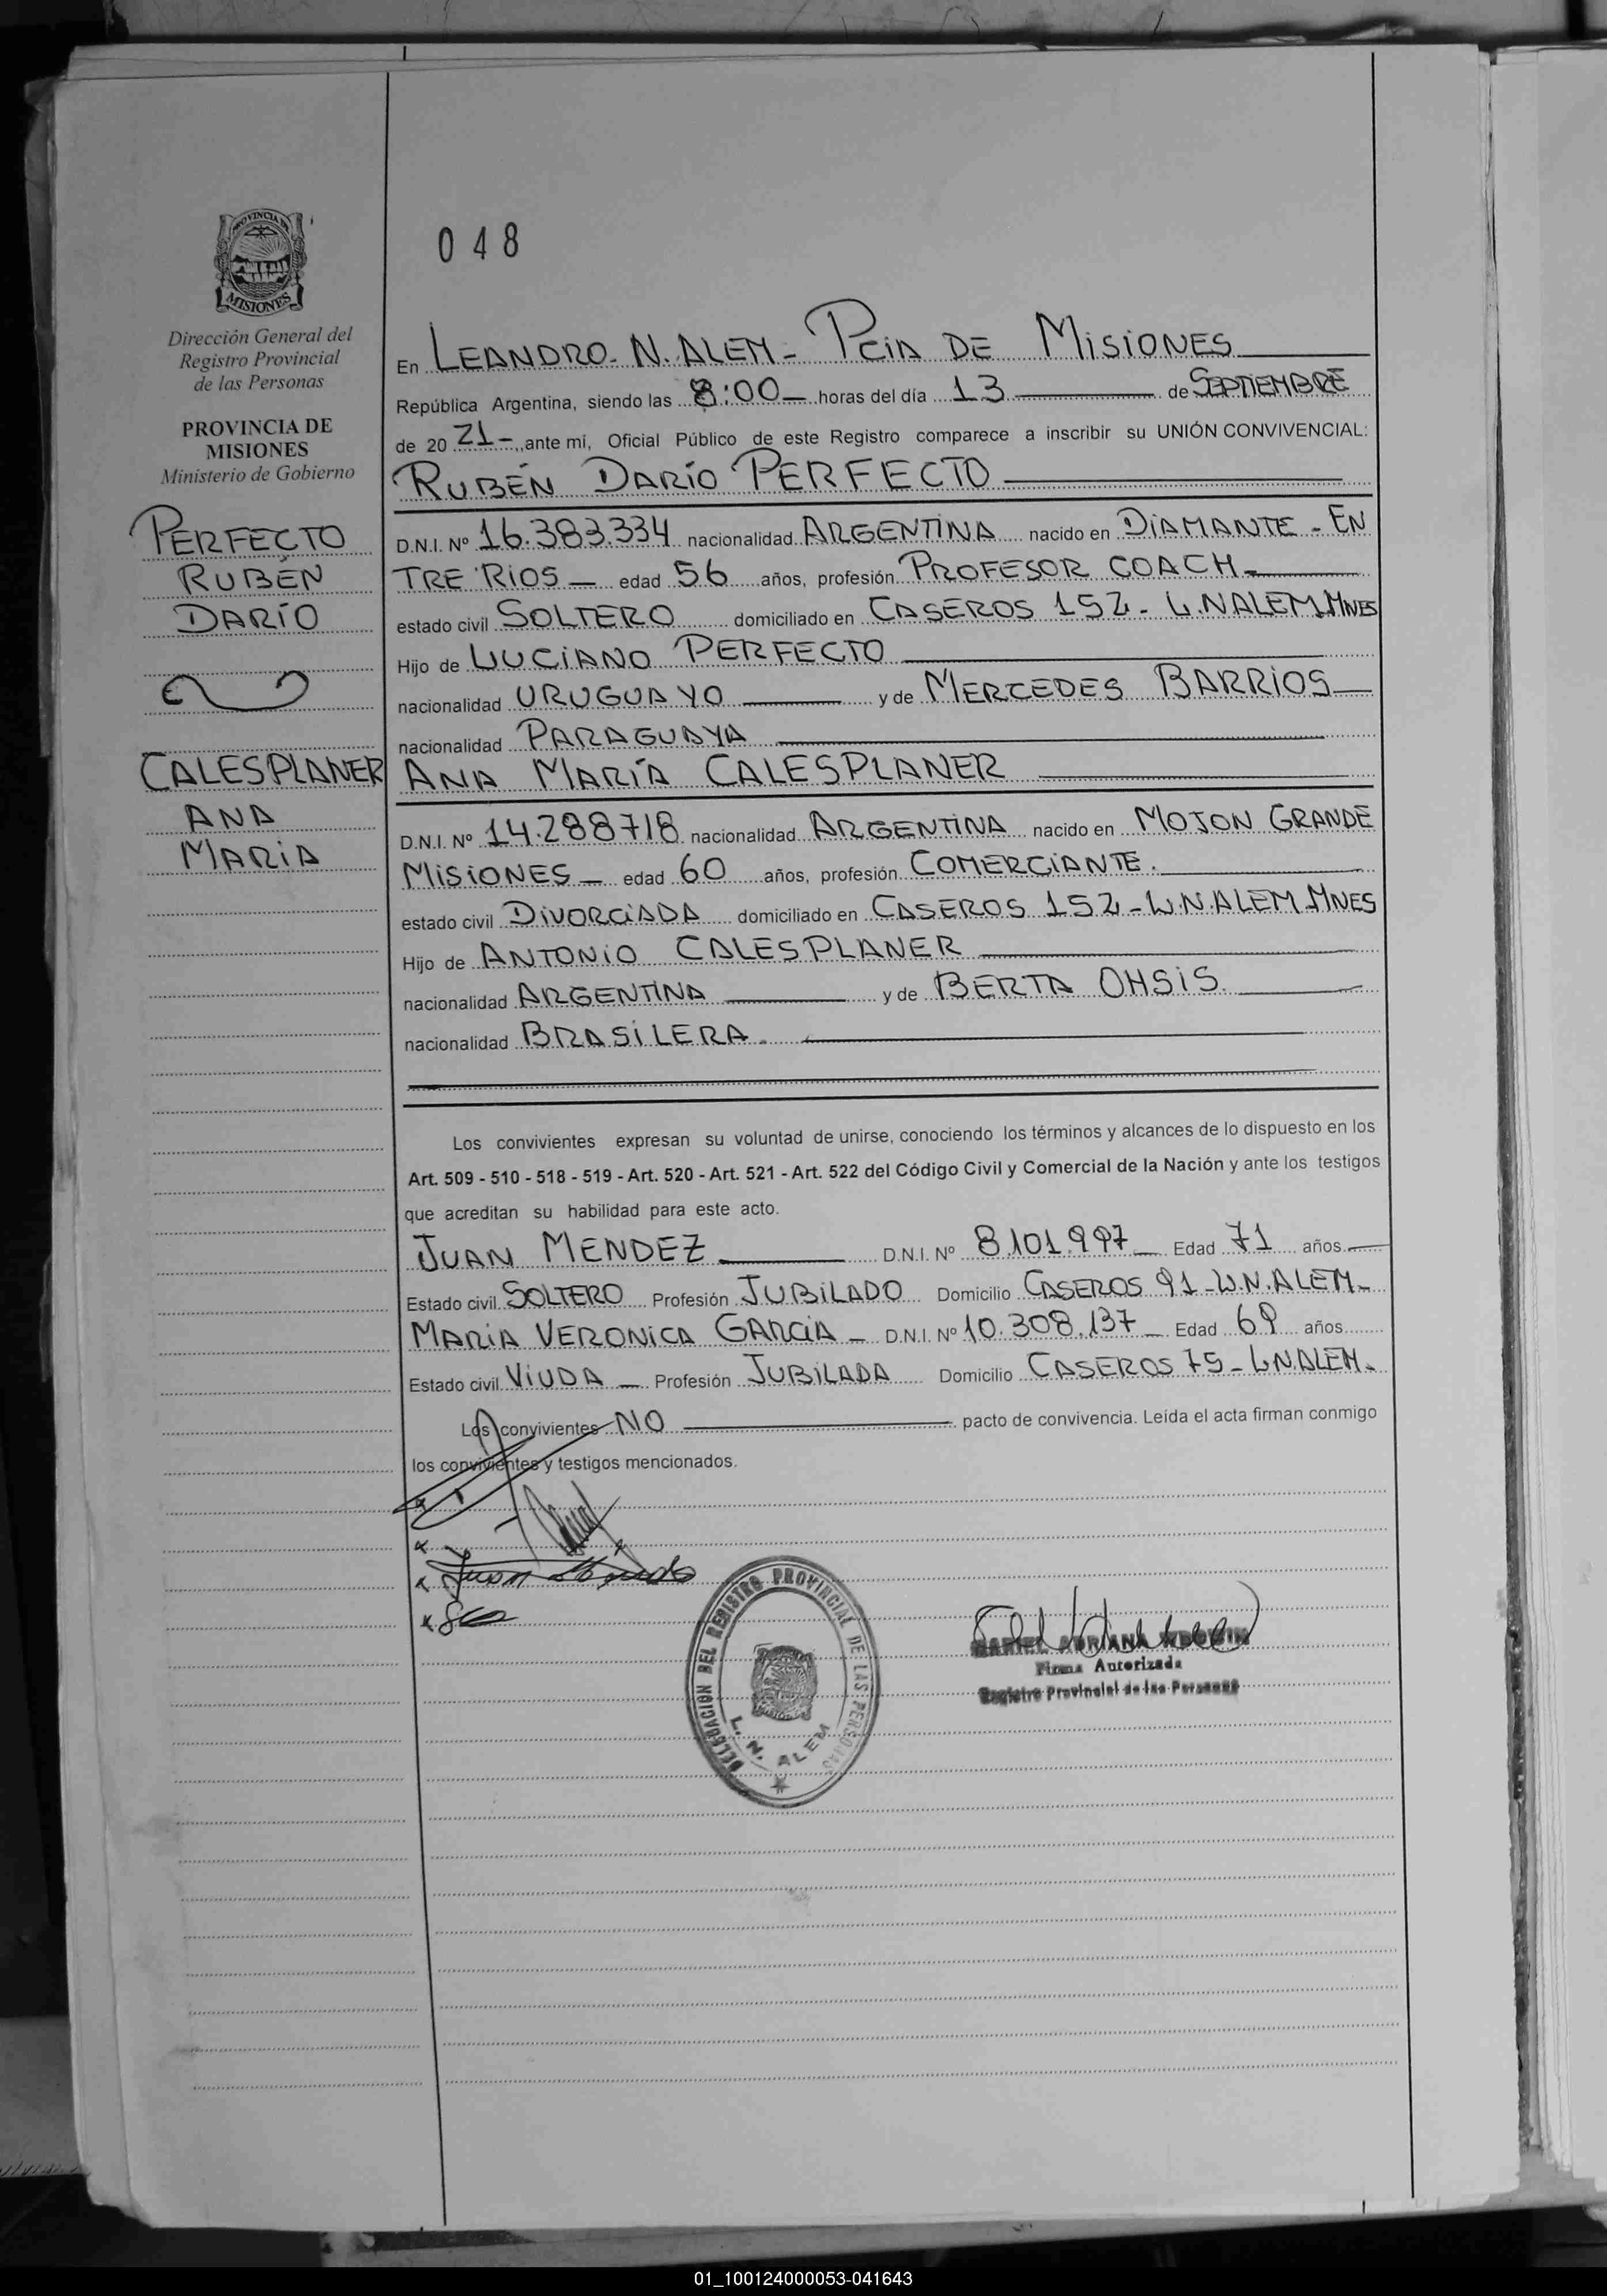 048
PROVINCIA DE
MISIONES
Dirección General del
Registro Provincial
de las Personas
PROVINCIA DE
MISIONES
Ministerio de Gobierno
PERFECTO
RUBÉN
DARÍO
CALESPLANER
ANA
MARIA
En LEANDRO. N. ALEM - PCIA DE MISIONES
República Argentina, siendo las 8:00 horas del día 13 de SEPTIEMBRE
de 20 21 -, ante mí, Oficial Público de este Registro comparece a inscribir su UNIÓN CONVIVENCIAL:
RUBÉN DARÍO PERFECTO
D.N.I. Nº 16.383.334 nacionalidad ARGENTINA nacido en DIAMANTE - EN
TRE RIOS - edad 56 años, profesión PROFESOR COACH -
estado civil SOLTERO domiciliado en CASEROS 152 - L.N ALEM. MNES
Hijo de LUCIANO PERFECTO
nacionalidad URUGUAYO y de MERCEDES BARRIOS
nacionalidad PARAGUAYA
ANA MARÍA CALESPLANER
D.N.I. Nº 14.288718 nacionalidad ARGENTINA nacido en MOJON GRANDE
MISIONES - edad 60 años, profesión COMERCIANTE.
estado civil DIVORCIADA domiciliado en CASEROS 152 - L.N.ALEM. MNES
Hijo de ANTONIO CALESPLANER
nacionalidad ARGENTINA y de BERTA OHSIS.
nacionalidad BRASILERA.
Los convivientes expresan su voluntad de unirse, conociendo los términos y alcances de lo dispuesto en los
Art. 509 - 510 - 518 - 519 - Art. 520 - Art. 521 - Art. 522 del Código Civil y Comercial de la Nación y ante los testigos
que acreditan su habilidad para este acto.
JUAN MENDEZ D.N.I. Nº 8.101.997 Edad 71 años
Estado civil SOLTERO Profesión JUBILADO Domicilio CASEROS 91 - L.N. ALEM -
MARIA VERONICA GARCIA - D.N.I. Nº 10.308.137 Edad 69 años
Estado civil VIUDA - Profesión JUBILADA Domicilio CASEROS 75 - L.N.ALEM.
Los convivientes NO pacto de convivencia. Leída el acta firman conmigo
los convivientes y testigos mencionados.
Juan
DELEGACION DEL REGISTRO PROVINCIAL DE LAS PERSONAS
L. N. ALEM
ADRIANA
Firma Autorizada
Registro Provincial de las Personas
01_100124000053-041643